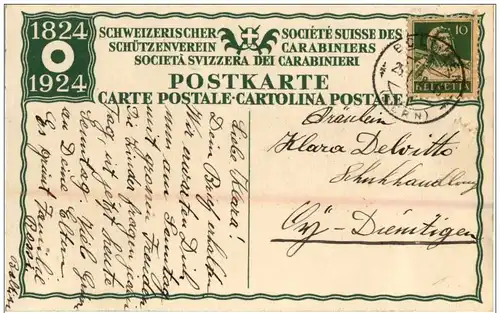 1824
1924
SCHWEIZERISCHER
SCHÜTZENVEREIN
SOCIÉTÉ SUISSE DES
CARABINIERS
SOCIETÀ SVIZZERA DEI CARABINIERI
POSTKARTE
CARTE POSTALE-CARTOLINA POSTALE
10
HELVETIA
(BERN)
Fräulein
Klara Delvitto
Schuhhandlung
Oÿ-Diemtigen
Liebe Klara!
Dein Brief erhalten
Wir erwarten Dich
nun am Sonntag
mit grossen Freuden
Die Kinder fragen jeden
Tag, ist jetzt heute
Sonntag. Viele Grüsse
an Deine Eltern
Es grüsst Familie